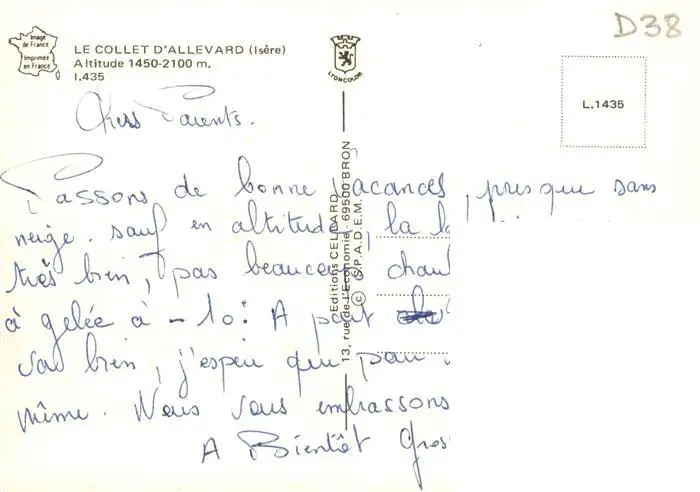 Image
de France
Imprimée
en France
LE COLLET D'ALLEVARD (Isère)
Altitude 1450-2100 m.
I.435
LYONCOLOR
D38
L.1435
Chers Parents.
Passons de bonne vacances, presque sans
neige. sauf en altitude, la
très bien, pas beaucoup
à gelée à - 10°. A part
va bien, j'espère que pour
même. Nous vous embrassons
A Bientôt Gros
Editions CELLARD
13, rue de l'Economie, 69500 BRON
(c) S.P.A.D.E.M.